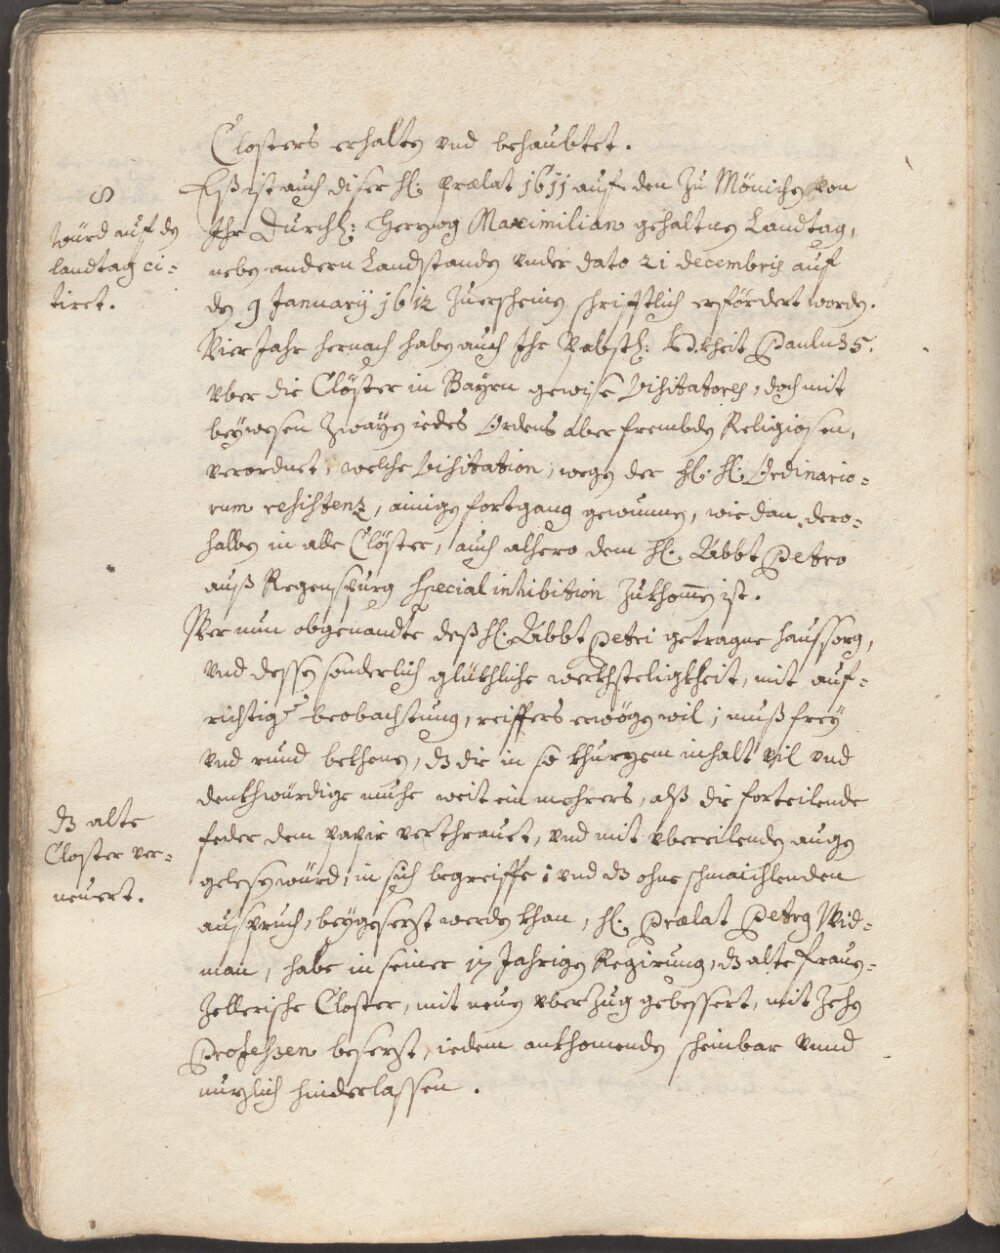 Closters erhalten vnd behaubtet.
8
würd auf den
landtag ci-
tiret.
Esß ist auch diser hl: prælat 1611 auf den Zu Mönichen von
Ihr Durchl: Herzog Maximilian gehaltnen Landtag,
neben andern Landstanden vnder dato 21 decembris auf
den 9 January 1612 zuerscheinen schrifftlich erfördert worden.
Vier Jahr hernach haben auch Ihr Pabstl: Paulus 5.
vber die Clöster in Bayrn gewise Visitatores, doch mit
beywesen Zwayen iedes Ordens aber frembden Religiosen,
verordnet, welche Visitation, wegen der hl. hl. Ordinario-
rum resistenz, ainigen fortgang gewunnen, wie dan dero-
halben in alle Clöster, auch alhero dem hl. Abbt Petro
auß Regenspurg special inhibition Zukhommen ist.
Wer nun obgenandte deß hl. Abbt Petri getragne haussorg,
vnd dessen sonderlich glükhliche werkhsteligkheit, mit auf-
richtiger beobachtung, reiffers erwögen wil, muß frey
vnd rund bekhenen, dz die in so khurzem inhalt vil vnd
denkhwürdige muhe weit ein mehrers, alß die forteilende
feder dem papir verthrauet, vnd mit vbereilenden augen
gelesen würd, in sich begreiffe; vnd dz ohne schmaichlenden
ausspruch, beygesetzt werden khan, hl. Prælat Petrg Wid-
man, habe in seiner 17 Jahrigen Regirung, dz alte Frauen-
dz alte
Closter ver-
neuert.
Zellerische Closter, mit neuen vberzug gebessert, mit Zehen
Professen besetzt, iedem ankhomenden scheinbar vnnd
nuzlich hinderlassen.